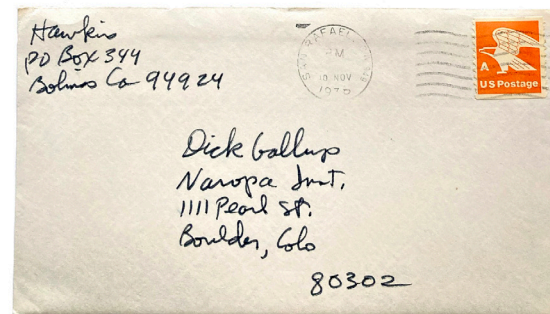 Hawkins
PO Box 344
Bolinas Ca 94924
SAN RAFAEL
PM
10 NOV
A
US Postage
Dick Gallup
Naropa Inst.
1111 Pearl St.
Boulder, Colo
80302